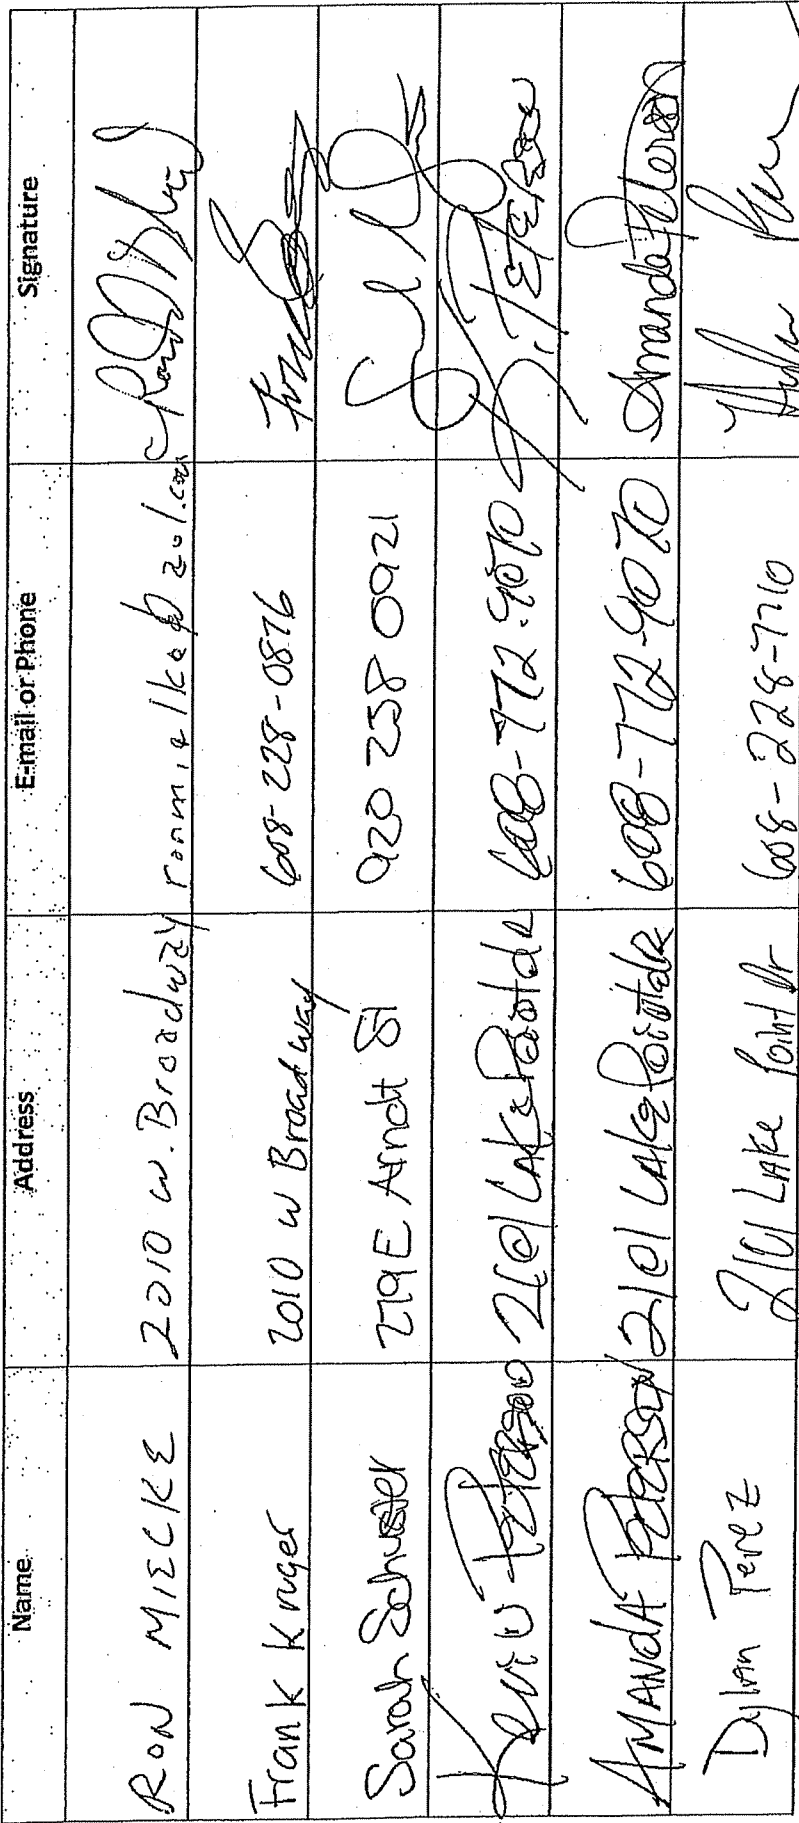 Name Address E-mail or Phone Signature
RON MIECKE 2010 W. Broadway
Frank Kruger 2010 W Broadway 608-228-0876
Sarah Schuster 279 E Arndt St 920 238 0921
Kevin Peterson 2101 Lake Point dr 608-772-9070 K. Peterson
AMANdA PETERSON 2101 LAke Point dR 608-772-9070 Amanda Peterson
Dylan Perez 2101 Lake Point Dr 608-228-7710